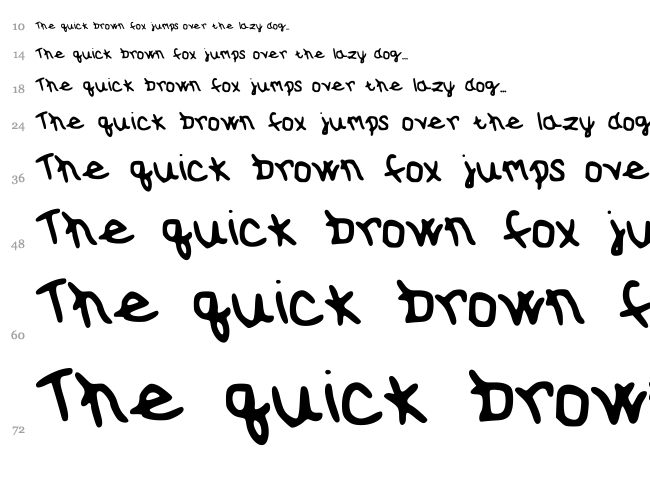 10 The quick brown fox jumps over the lazy dog...
14 The quick brown fox jumps over the lazy dog...
18 The quick brown fox jumps over the lazy dog...
24 The quick brown fox jumps over the lazy dog
36 The quick brown fox jumps ove
48 The quick brown fox ju
60 The quick brown f
72 The quick brow